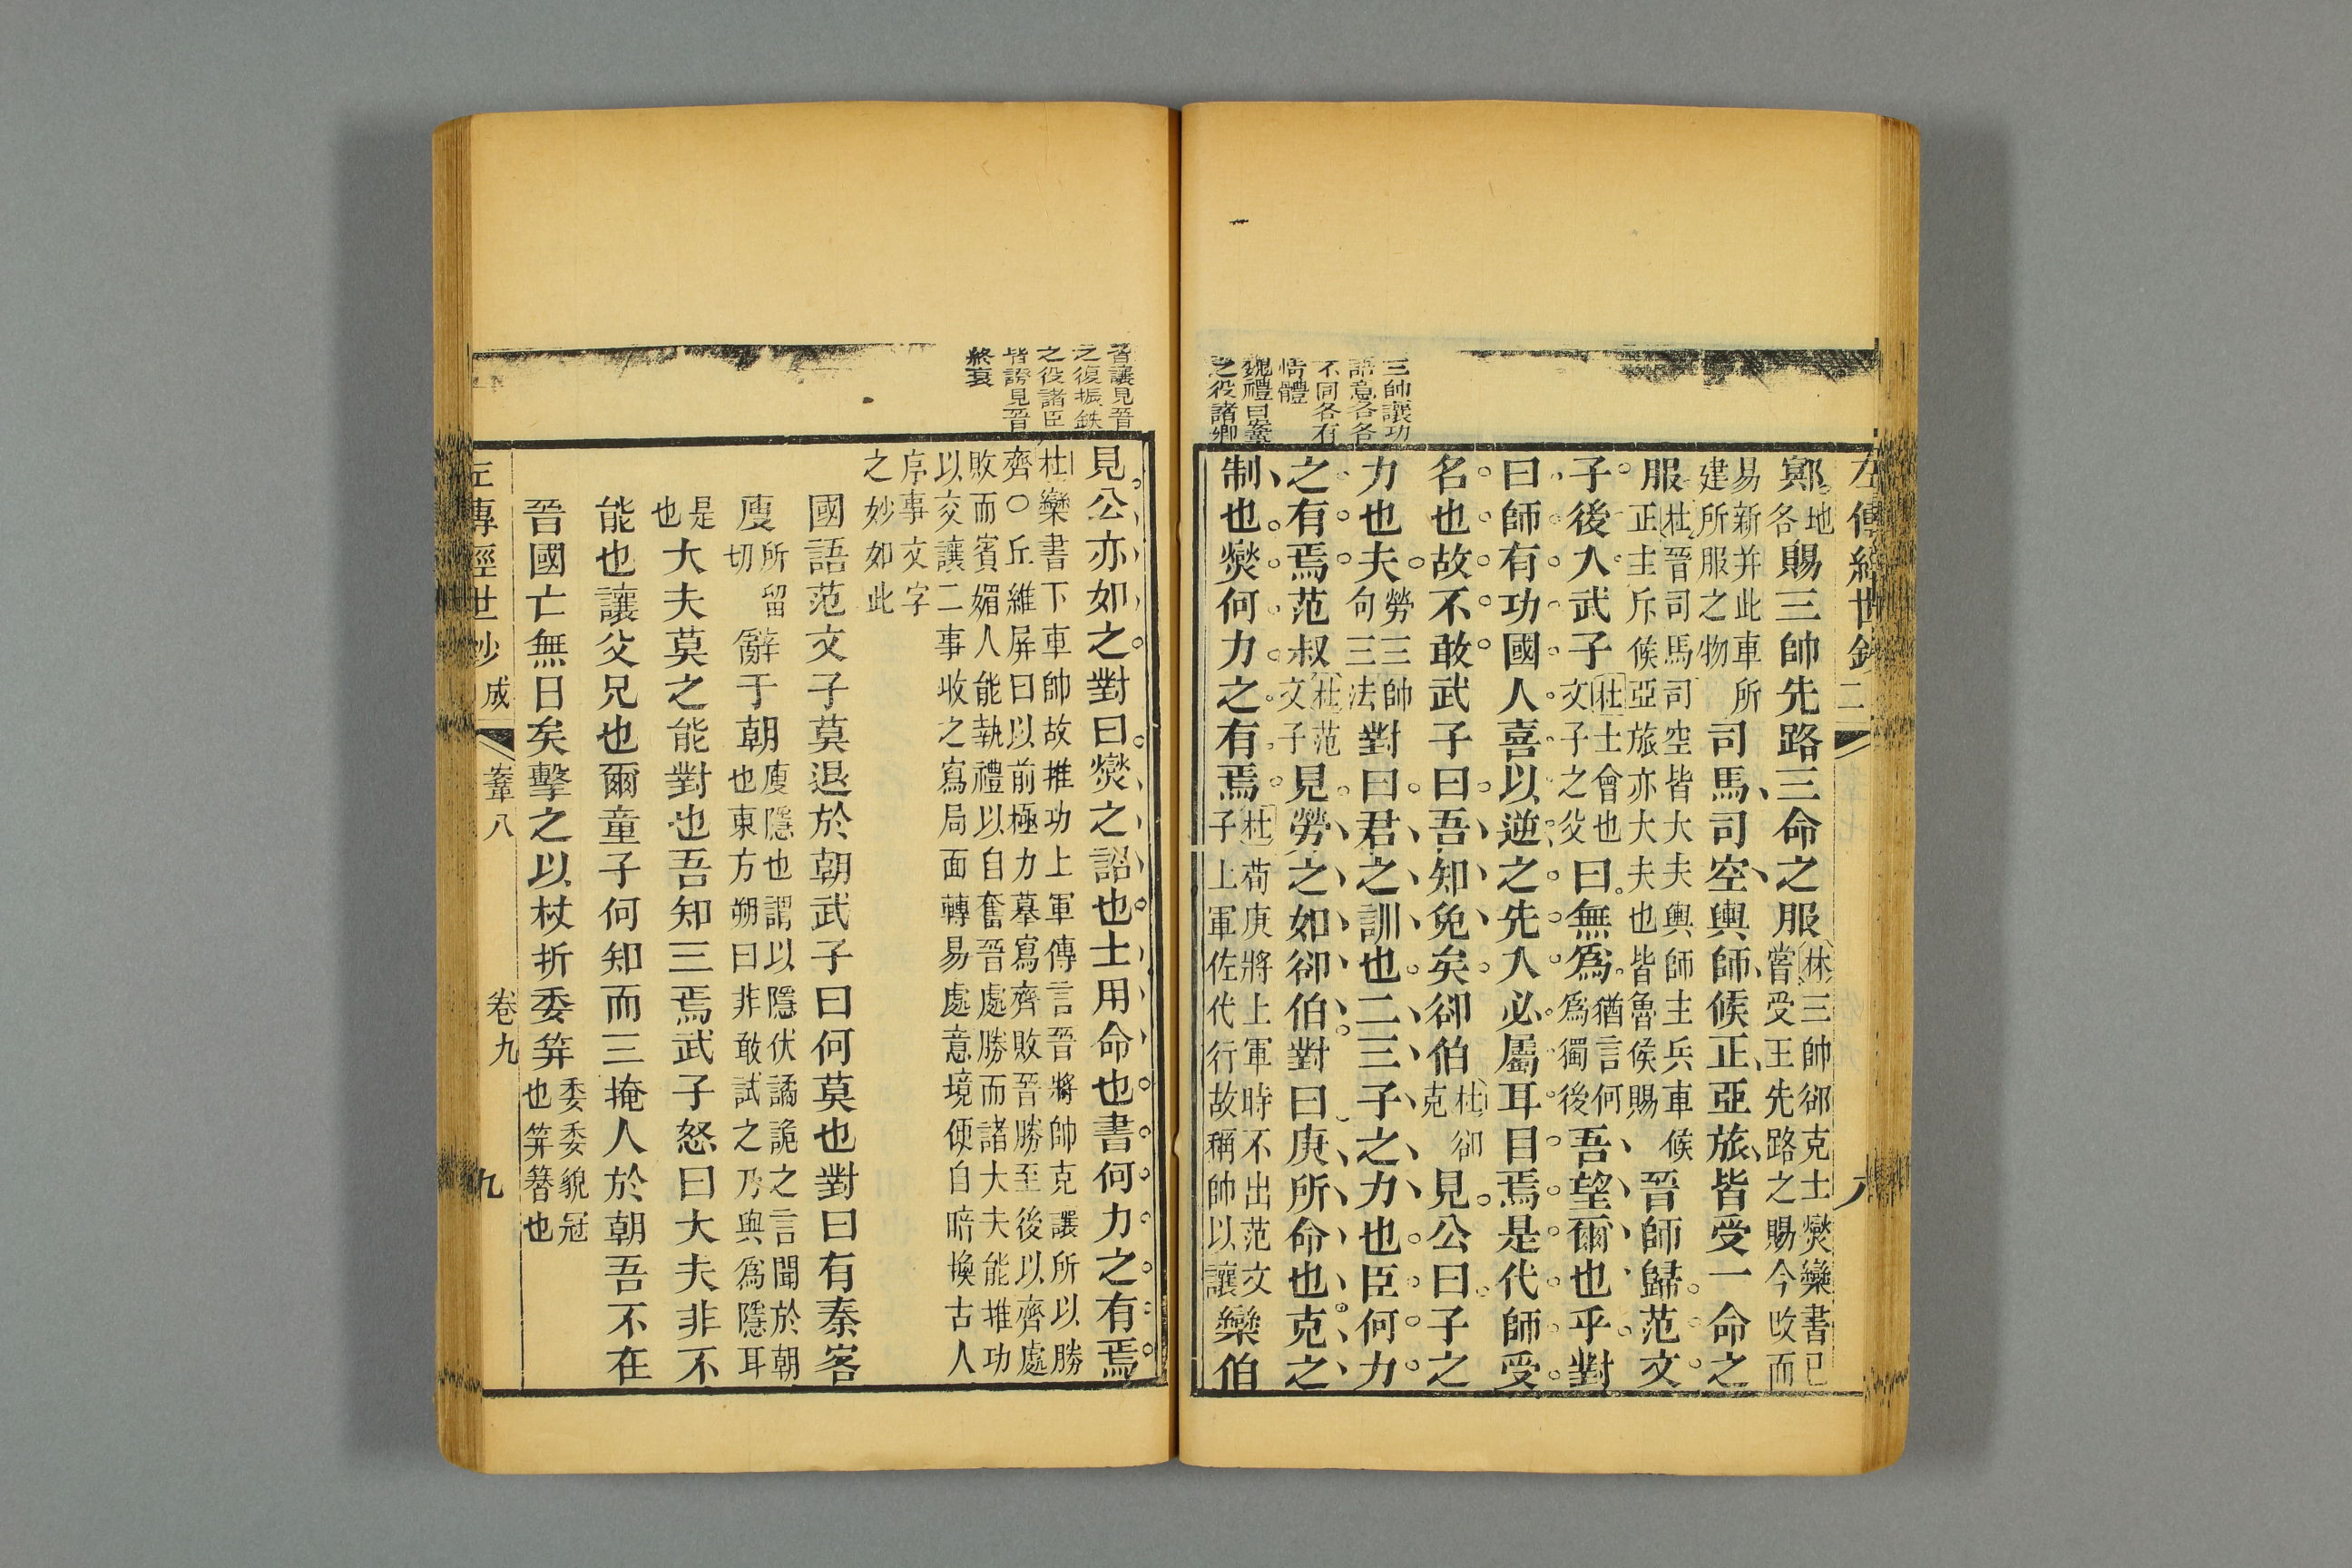 左傳經世鈔 二 八
三帥讓功
語意各各
不同各有
情體
魏禮曰鞌
之役諸卿
鄍地各賜三帥先路三命之服林三帥郤克士燮欒書已嘗受王先路之賜今改而
易新并此車所建所服之物司馬司空輿師候正亞旅皆受一命之
服杜晉司馬司空皆大夫輿師主兵車候正主斥候亞旅亦大夫也皆魯侯賜晉師歸范文
子後入武子杜士會也文子之父曰無爲猶言何爲獨後吾望爾也乎對
曰師有功國人喜以逆之先入必屬耳目焉是代師受
名也故不敢武子曰吾知免矣郤伯杜郤克見公曰子之
力也夫勞三帥句三法對曰君之訓也二三子之力也臣何力
之有焉范叔杜范文子見勞之如郤伯對曰庚所命也克之
制也燮何力之有焉杜荀庚將上軍時不出范文子上軍佐代行故稱帥以讓欒伯
皆讓見晉
之復振鉄
之役諸臣
皆誇見晉
終衰
見公亦如之對曰燮之詔也士用命也書何力之有焉
杜欒書下車帥故推功上軍傳言晉將帥克讓所以勝
齊○丘維屏曰以前極力摹寫齊敗晉勝至後以齊處
敗而賓媚人能執禮以自奮晉處勝而諸大夫能推功
以交讓二事收之寫局面轉易處意境便自暗換古人
序事文字
之妙如此
國語范文子莫退於朝武子曰何莫也對曰有秦客
廋所留切辭于朝廋隱也謂以隱伏譎詭之言聞於朝也東方朔曰非敢試之乃與爲隱耳
是也大夫莫之能對也吾知三焉武子怒曰大夫非不
能也讓父兄也爾童子何知而三掩人於朝吾不在
晉國亡無日矣擊之以杖折委笄委委貌冠也笄簪也
左傳經世鈔 成 鞌八 卷九 九